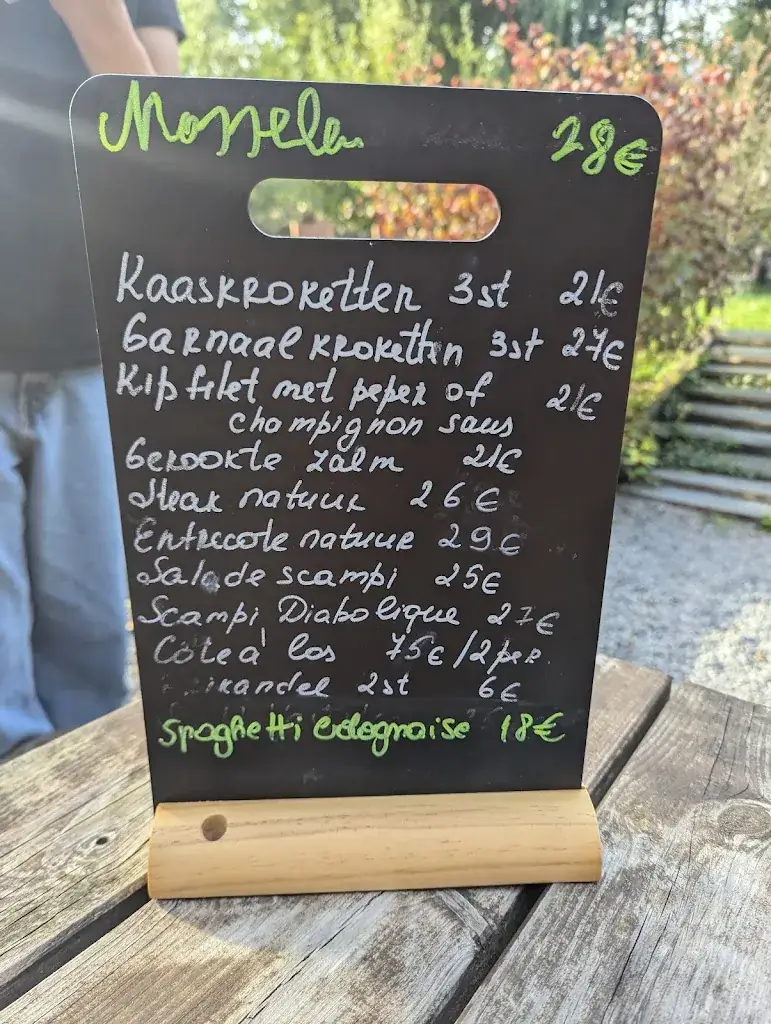 Mosselen 28€
Kaaskroketten 3st 21€
Garnaalkroketten 3st 27€
Kipfilet met peper of 21€
champignon saus
Gerookte zalm 21€
Steak natuur 26€
Entrecote natuur 29€
Salade scampi 25€
Scampi Diabolique 27€
Côte à los 75€/2per.
6€ 2st
Spaghetti bolognaise 18€